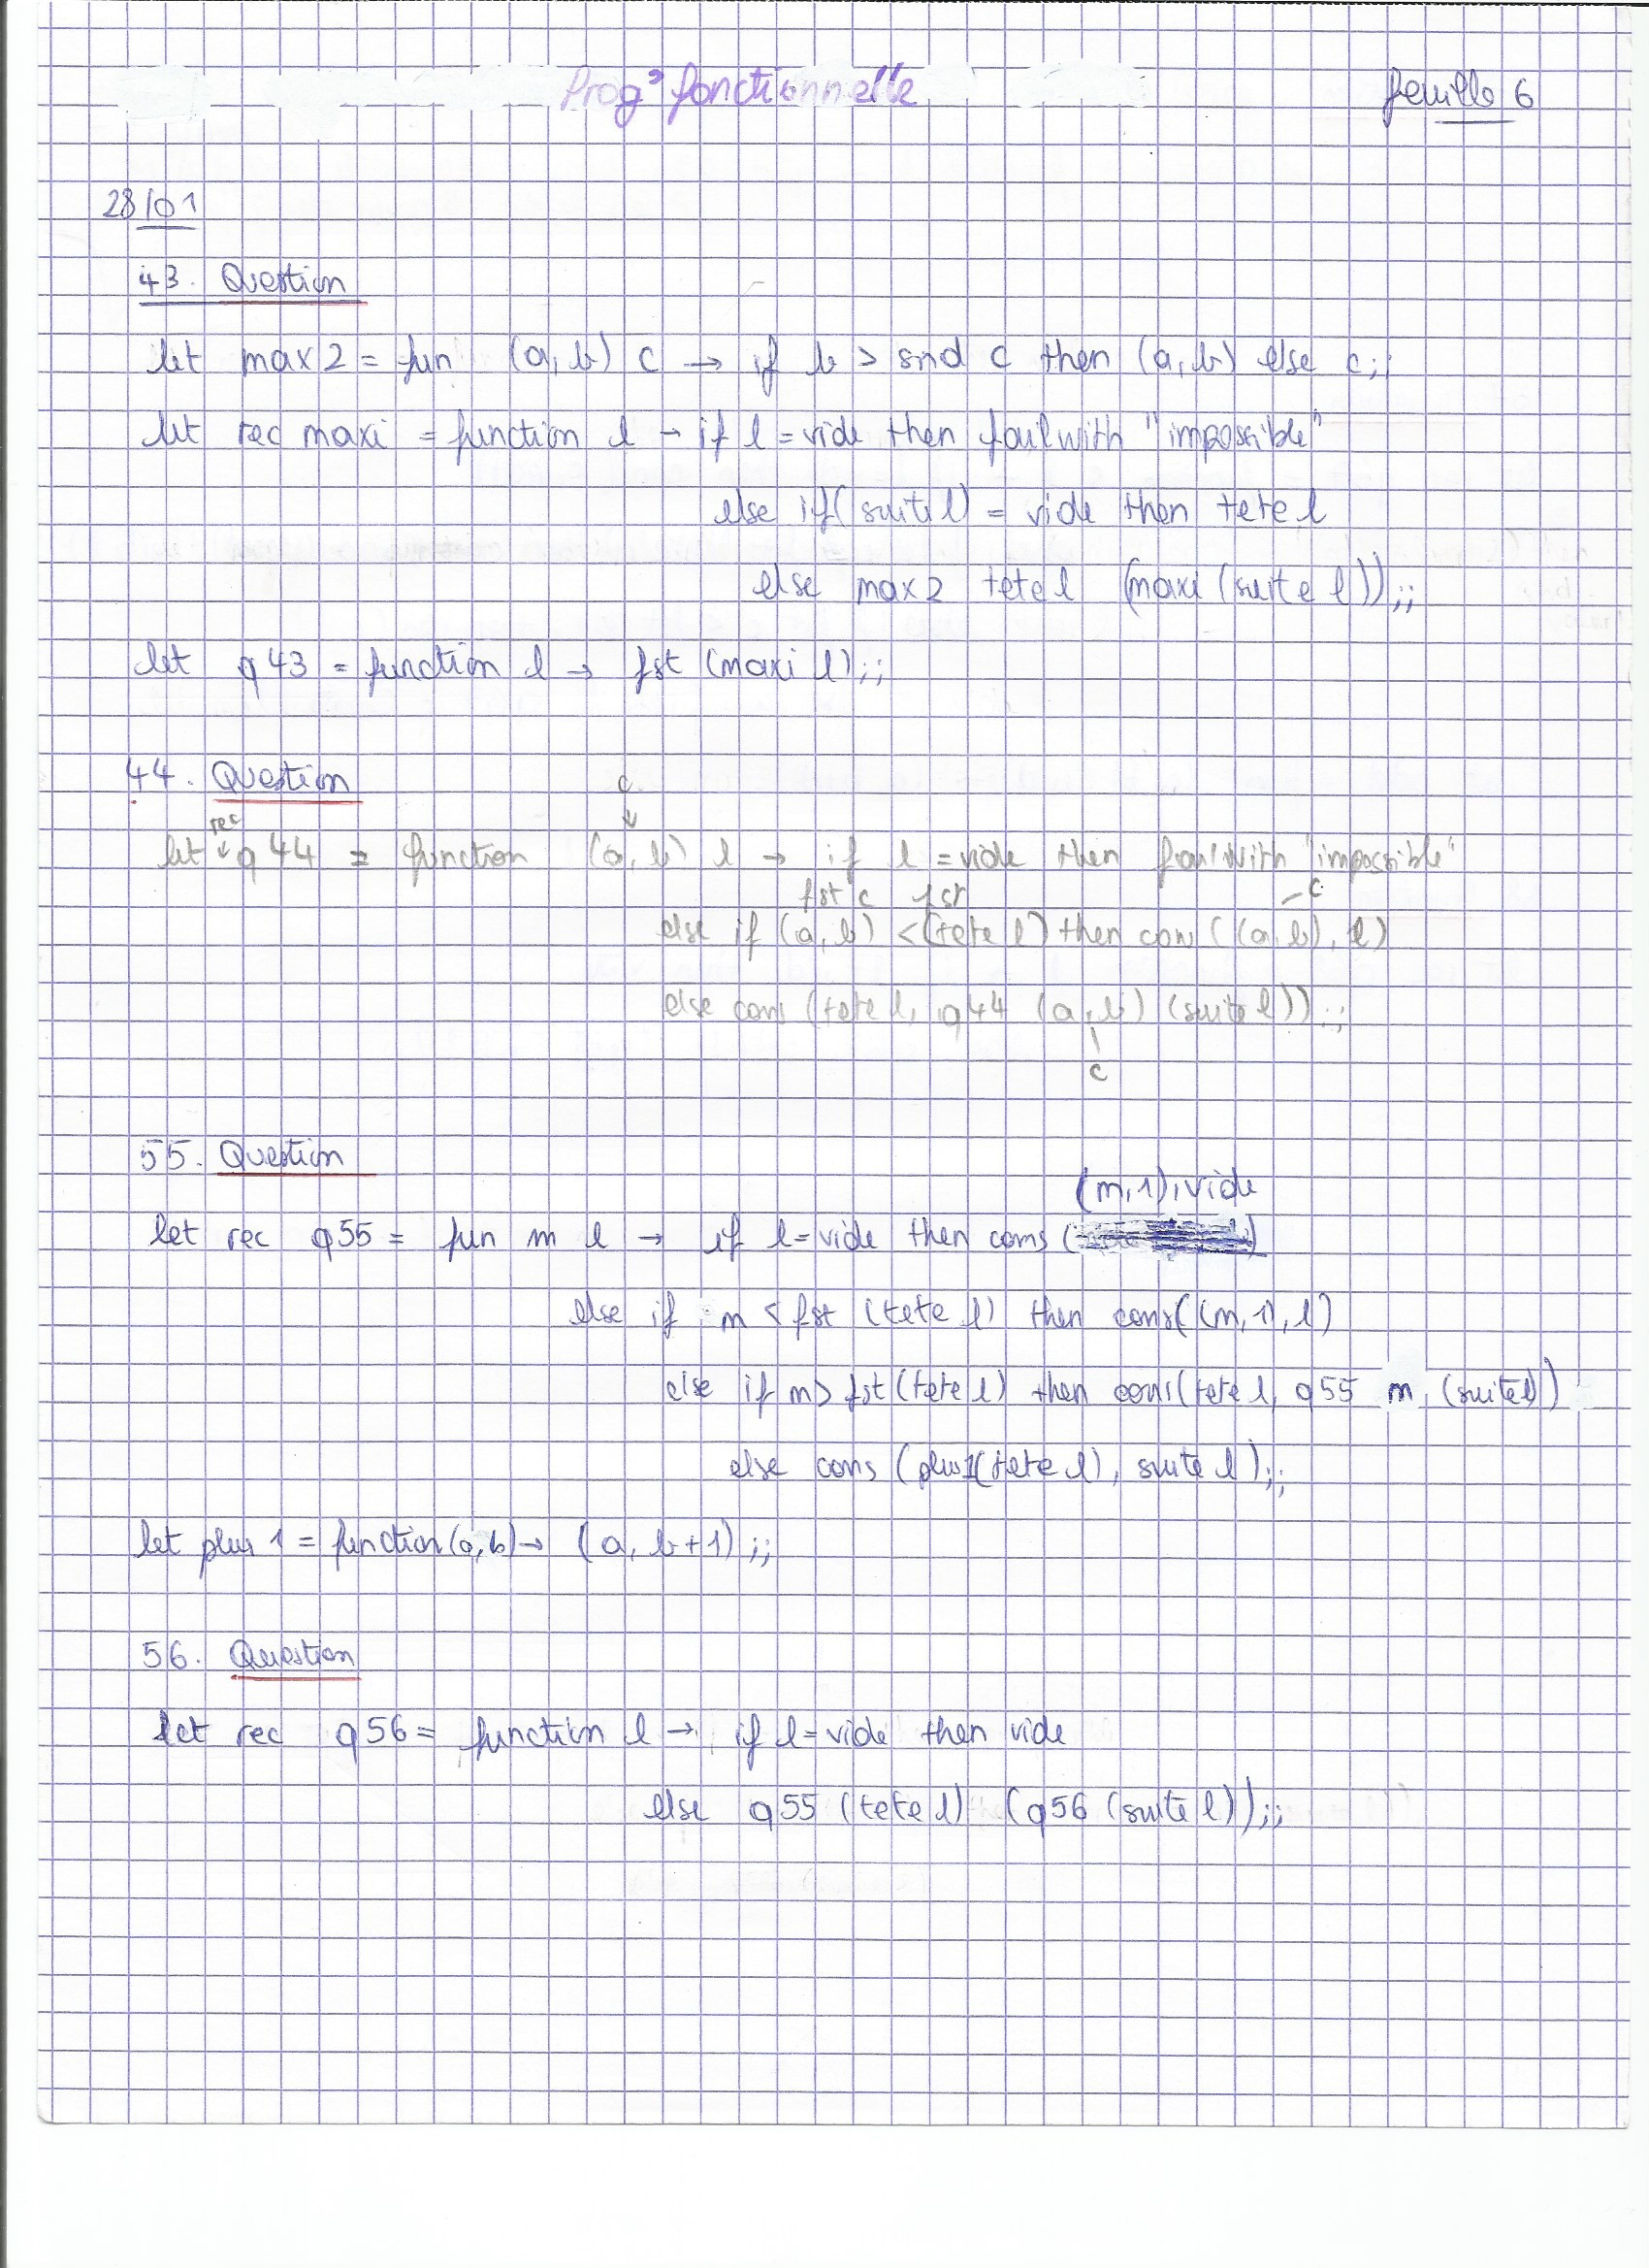 Prog° fonctionnelle
feuille 6
28/01
43. Question
let max2 = fun (a, b) c → if b > snd c then (a, b) else c;;
let rec maxi = function l → if l = vide then failwith "impossible"
else if (suite l) = vide then tete l
else max2 tete l (maxi (suite l));;
let q43 = function l → fst (maxi l);;
44. Question
c
rec ↓
let q44 = function (a, b) l → if l = vide then failwith "impossible"
fst c fst c
else if (a, b) < (tete l) then cons ((a, b), l)
else cons (tete l, q44 (a, b) (suite l));;
c
55. Question
(m, 1), vide
let rec q55 = fun m l → if l = vide then cons ( )
else if m < fst (tete l) then cons((m, 1), l)
else if m > fst (tete l) then cons (tete l, q55 m (suite l))
else cons (plus1(tete l), suite l);;
let plus 1 = function (a, b) → (a, b+1);;
56. Question
let rec q56 = function l → if l = vide then vide
else q55 (tete l) (q56 (suite l));;